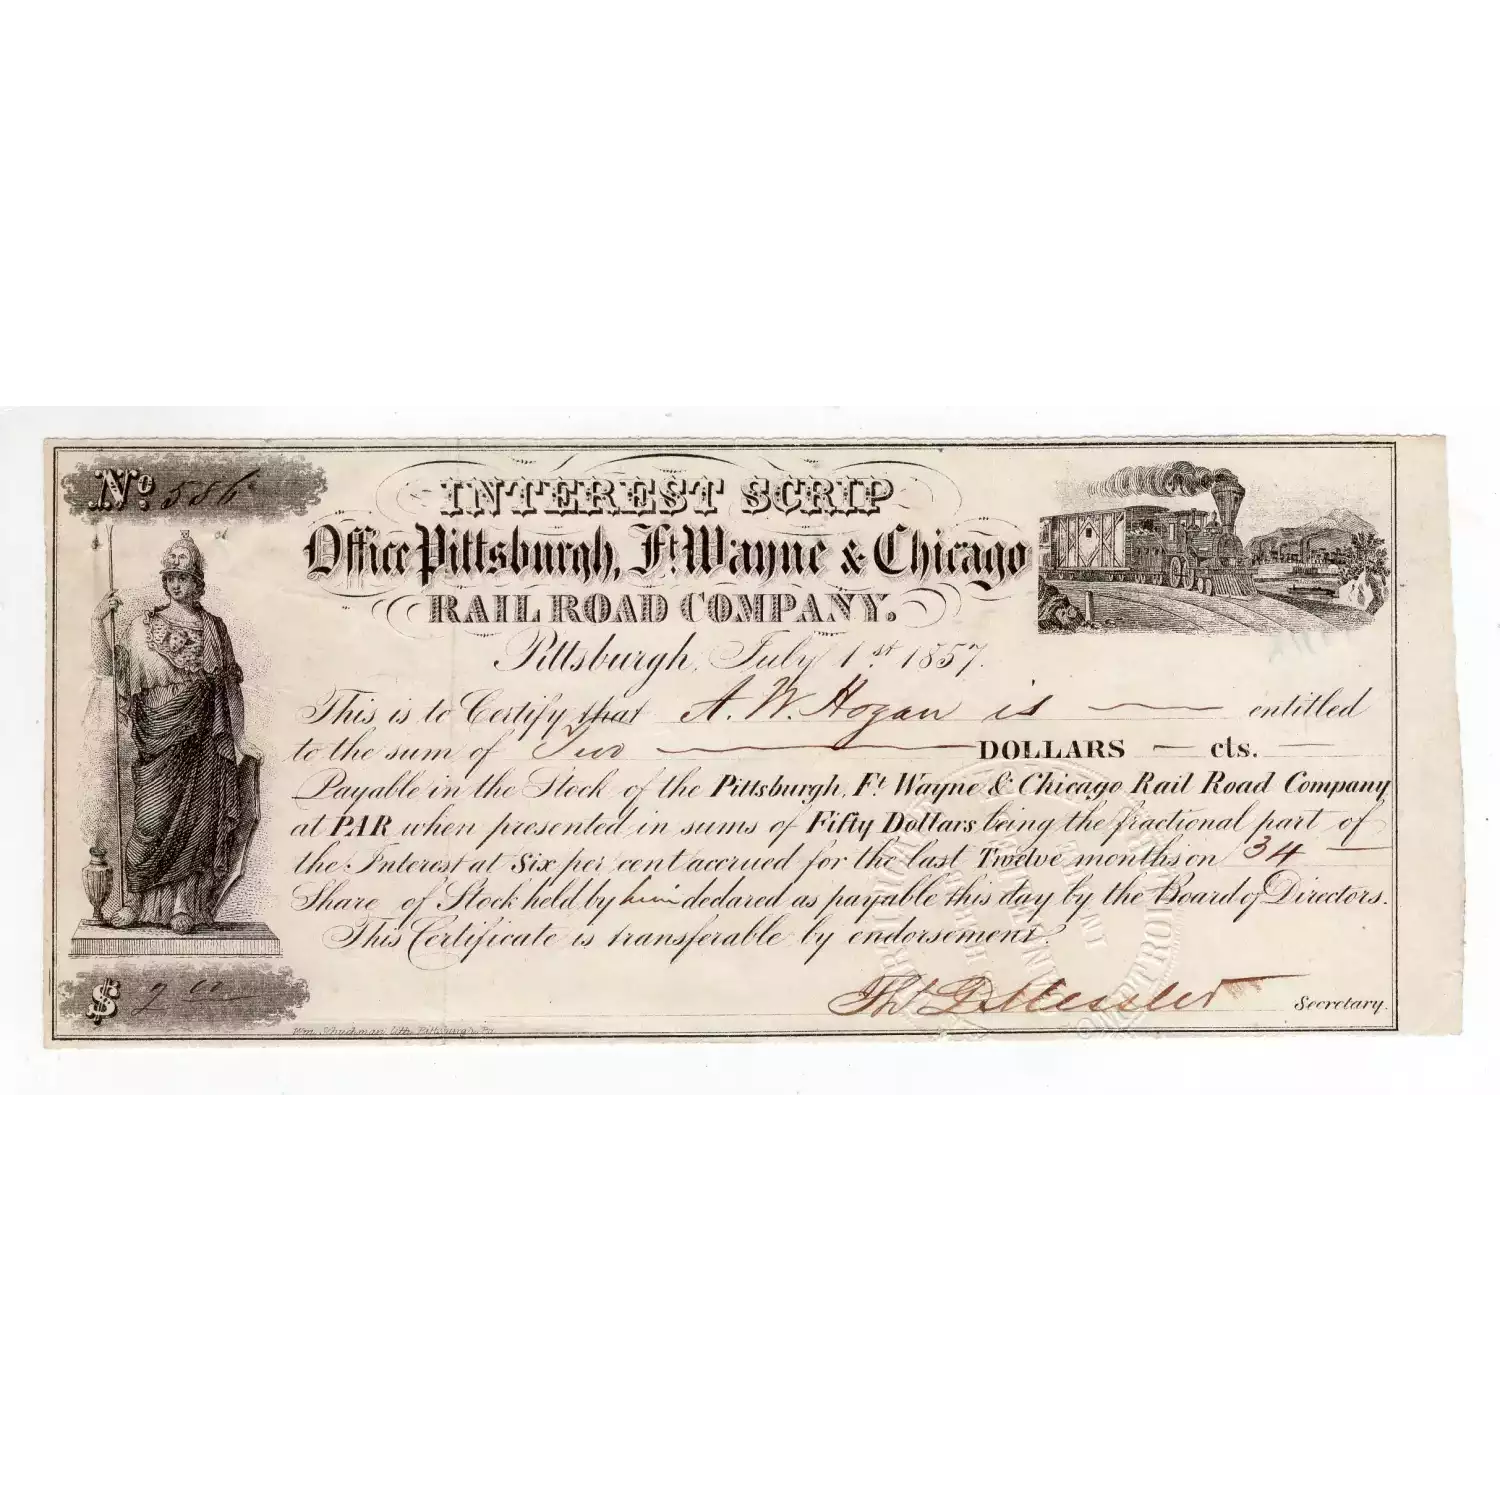 No. 586
INTEREST SCRIP
Office Pittsburgh, Ft. Wayne & Chicago
RAIL ROAD COMPANY.
Pittsburgh, July 1st 1857.
This is to Certify that A. W. Hogan is entitled
to the sum of Two DOLLARS — cts.
Payable in the Stock of the Pittsburgh, Ft. Wayne & Chicago Rail Road Company
at PAR when presented in sums of Fifty Dollars being the fractional part of
the Interest at Six per cent accrued for the last Twelve months on 34
Share of Stock held by him declared as payable this day by the Board of Directors.
This Certificate is transferable by endorsement.
$ 2 00
Secretary.
Wm. Schuchman, Lith. Pittsburgh, Pa.